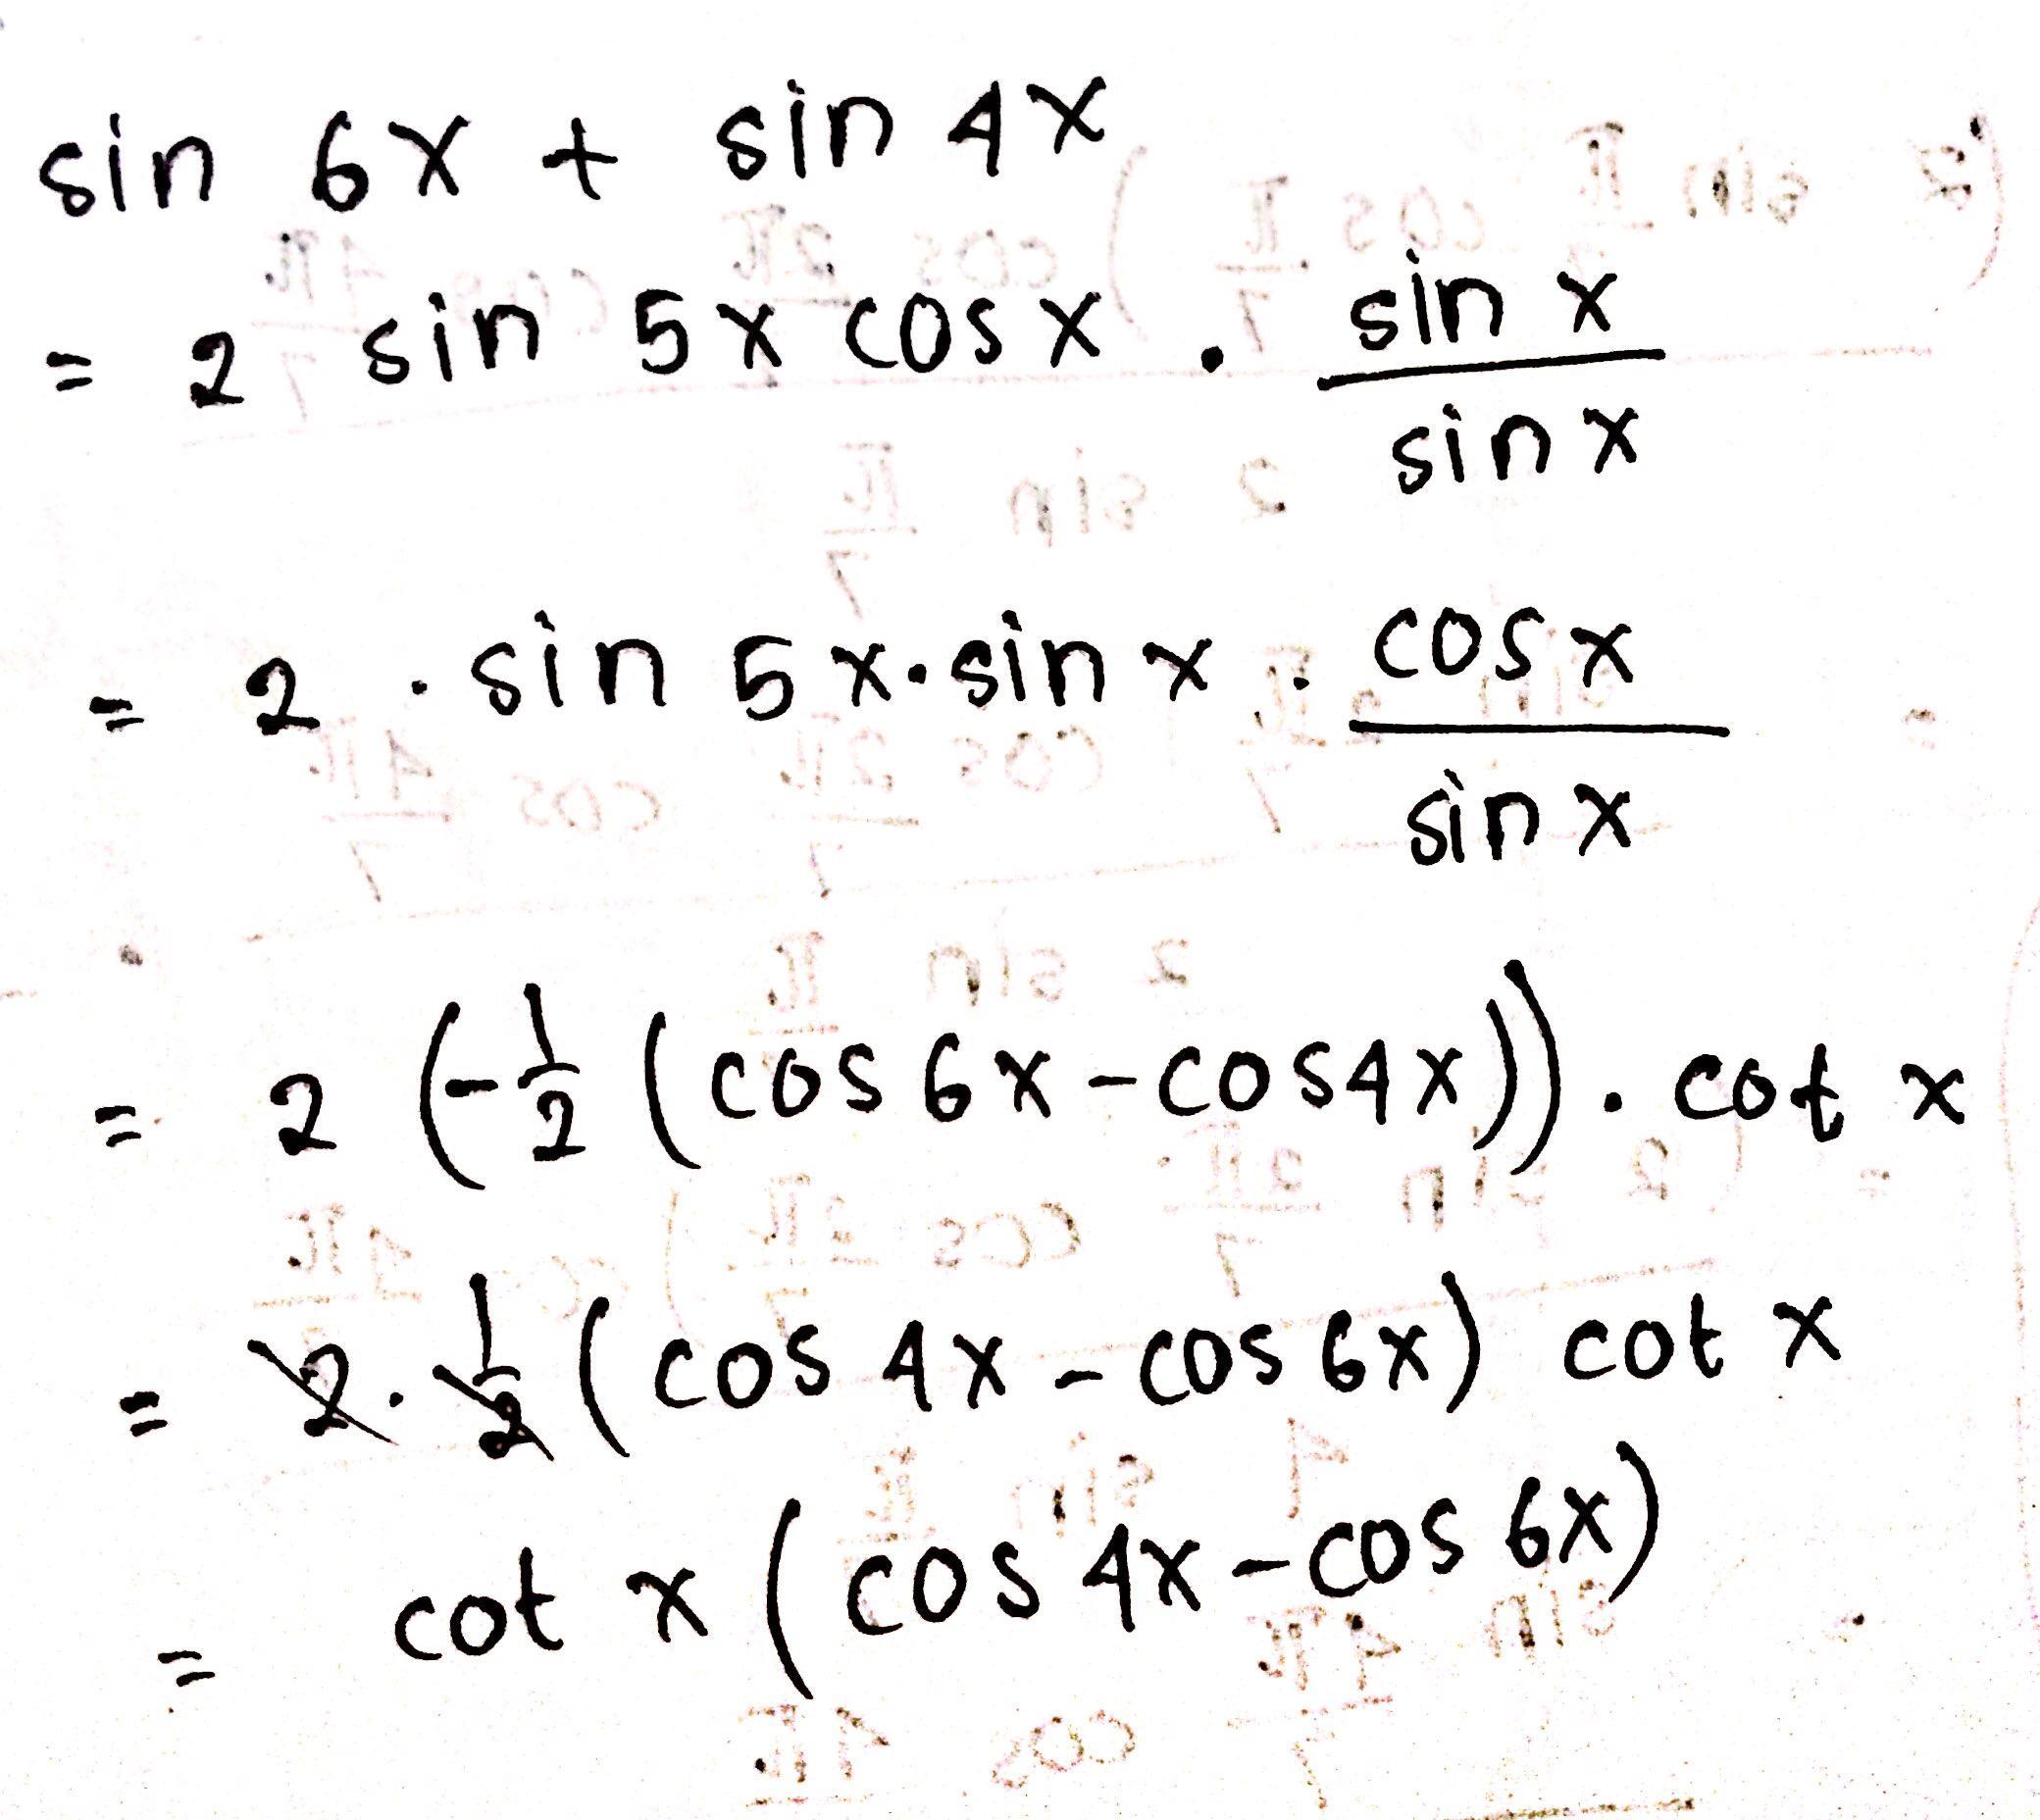 sin 6x + sin 4x
= 2 sin 5x cos x . sin x / sin x
= 2 . sin 5x . sin x . cos x / sin x
= 2 (-1/2 (cos 6x - cos 4x)) . cot x
= 2 . 1/2 (cos 4x - cos 6x) cot x
= cot x (cos 4x - cos 6x)